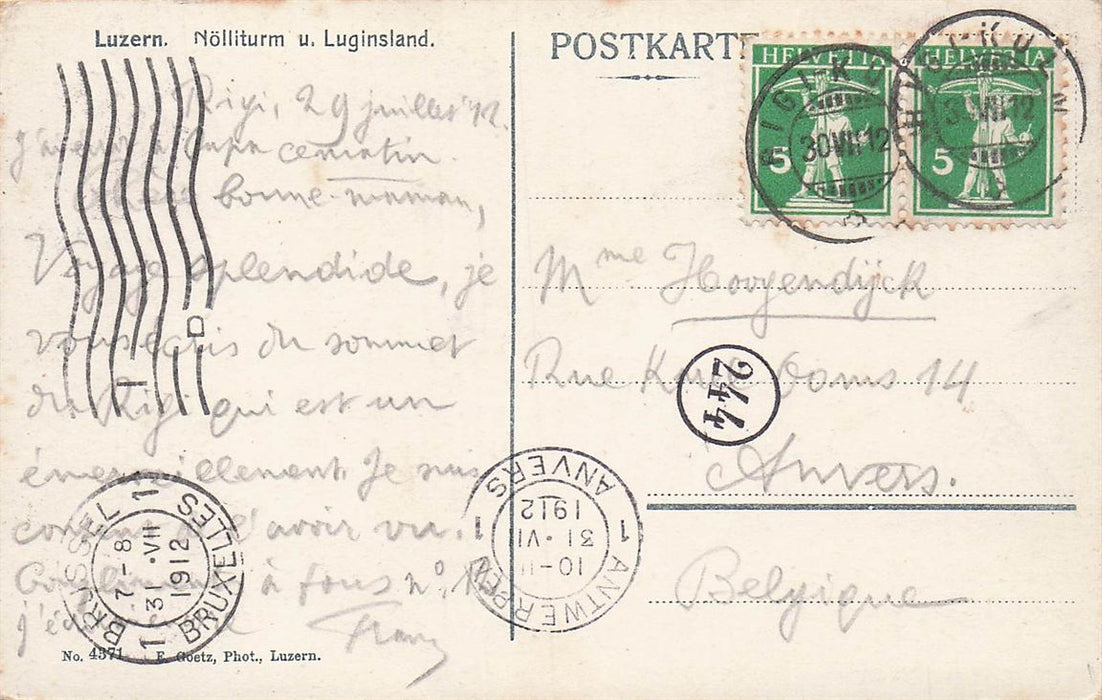 Luzern. Nölliturm u. Luginsland.
Rigi, 29 juillet 12.
J'ai à Papa ce matin.
Chère bonne-maman,
Voyage splendide, je
vous écris du sommet
du Rigi qui est un
émerveillement. Je suis
content de l'avoir vu.
à tous
j'
Franz
No. 4371 E. Goetz, Phot., Luzern.
POSTKARTE
HELVETIA HELVETIA
5 5
RIGI-KULM
30 VII 12
RIGI-KULM
30 VII 12
Mme Hooyendijck
Rue Ooms 14
244
Anvers.
Belgique
BRUSSEL 1
7-8
31·VII
1912
1 BRUXELLES
1 ANVERS
1912
31·VII
10-11
1 ANTWERPEN